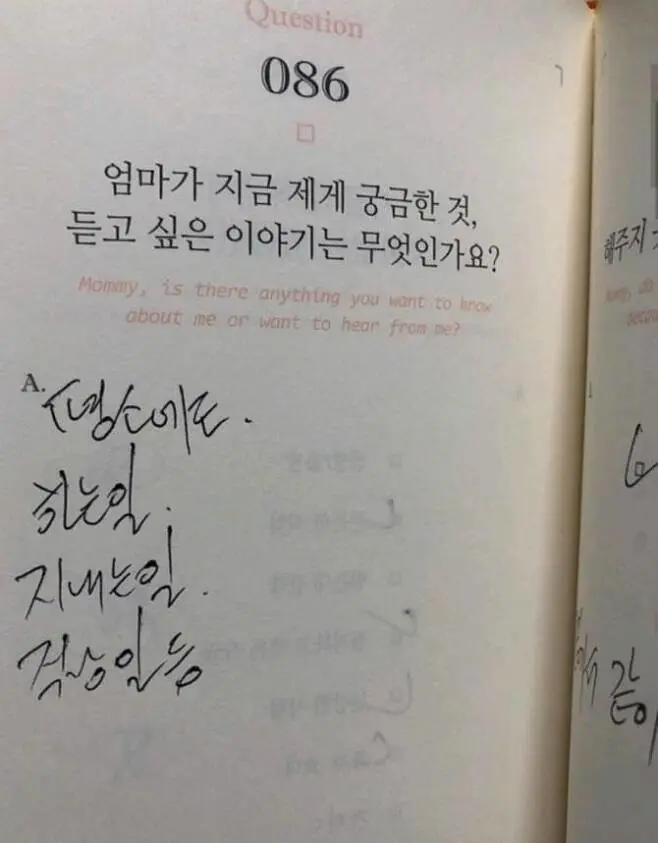 Question
086
엄마가 지금 제게 궁금한 것,
듣고 싶은 이야기는 무엇인가요?
Mommy, is there anything you want to know
about me or want to hear from me?
A.
평소에도.
하는일.
지내는일.
직장일 등
해주지